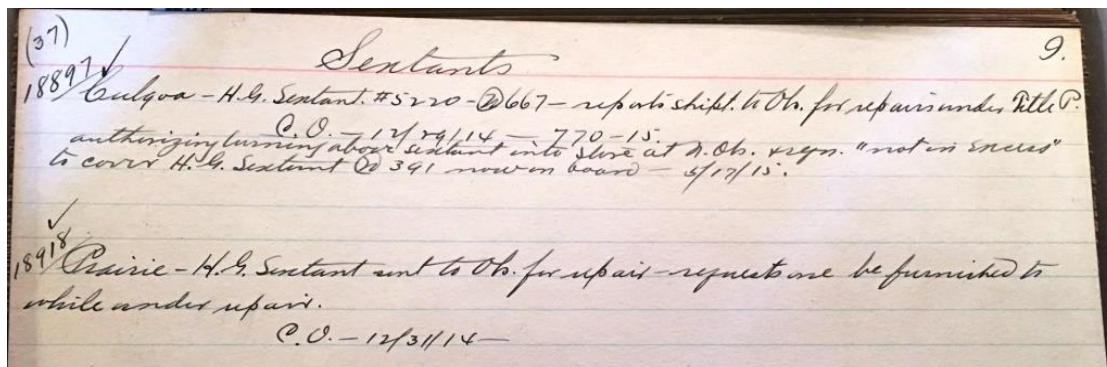 (37)
Sextants 9.
18897 ✓ Culgoa - H.G. Sextant. #5220 - @667 - reports shipt. to Ob. for repairs under Title P.
C.O. - 12/29/14 - 770-15.
authorizing turning above sextant into store at N.Ob. & reqn. "not in excess"
to cover H.G. Sextant @ 391 now on board - 5/17/15.
18918 ✓ Prairie - H.G. Sextant sent to Ob. for repair - requests one be furnished to
while under repair.
C.O. - 12/31/14 -